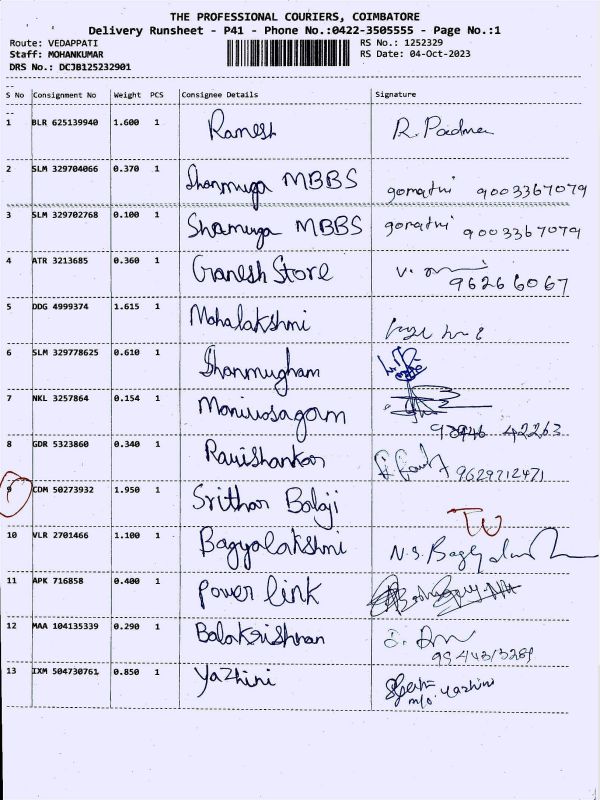 THE PROFESSIONAL COURIERS, COIMBATORE
Delivery Runsheet - P41 - Phone No.:0422-3505555 - Page No.:1
Route: VEDAPPATI RS No.: 1252329
Staff: MOHANKUMAR RS Date: 04-Oct-2023
DRS No.: DCJB125232901
S No Consignment No Weight PCS Consignee Details Signature
1 BLR 625139940 1.600 1 Ramesh R. Padma
2 SLM 329704066 0.370 1 Shanmuga MBBS gomathi 9003367079
3 SLM 329702768 0.100 1 Shamuga MBBS gomathi 9003367079
4 ATR 3213685 0.360 1 Ganesh Store
96266067
5 DDG 4999374 1.615 1 Mahalakshmi
6 SLM 329778625 0.610 1 Shanmugham
7 NKL 3257864 0.154 1 Manivasagam
42263
8 GDR 5323860 0.340 1 Ravishankar 9629712471
9 COM 50273932 1.950 1 Srithar Balaji
10 VLR 2701466 1.100 1 Bagyalakshmi N.S. Bagyalakshmi
11 APK 716858 0.400 1 Power link
12 MAA 104135339 0.290 1 Balakrishnan
13 IXM 504730761 0.850 1 Yazhini
m/o. yazhini